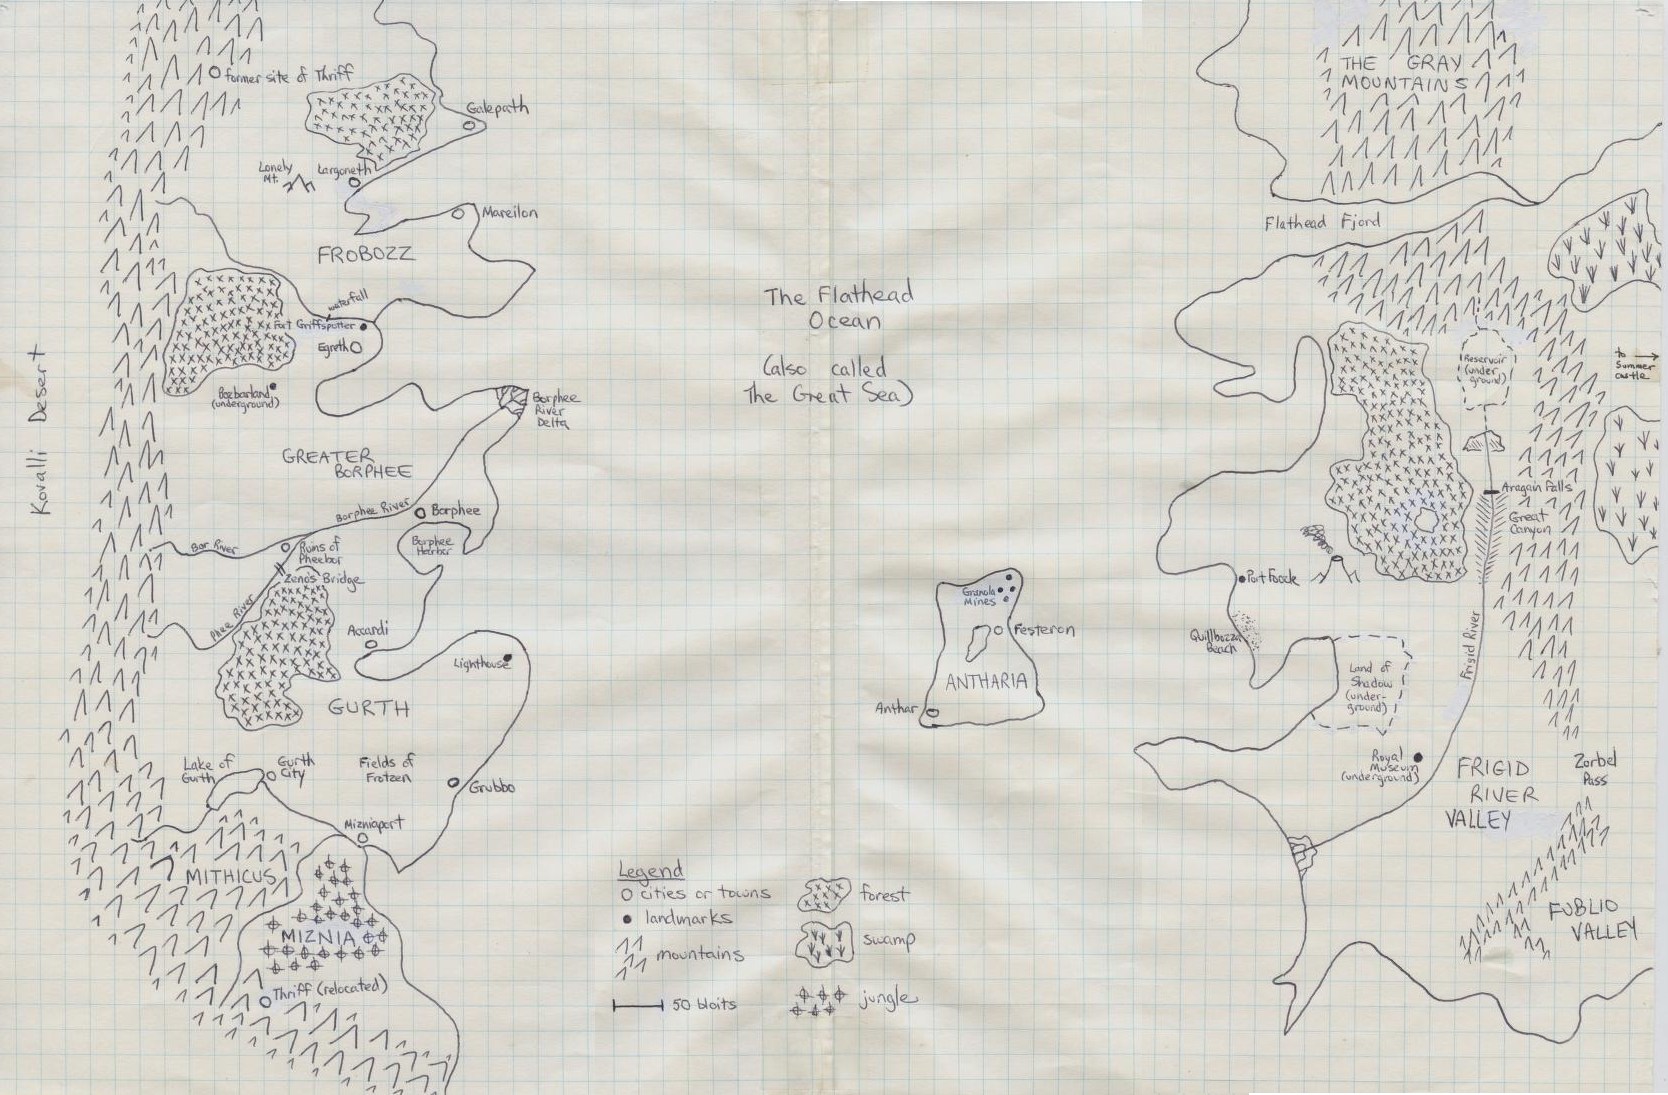 former site of Thriff
Galepath
Lonely
Mt.
Largoneth
Mareilon
FROBOZZ
waterfall
Fort Griffspotter
Egreth
Barbarland
(underground)
Kovalli Desert
Borphee
River
Delta
GREATER
BORPHEE
Borphee River
Borphee
Bor River
Ruins of
Pheebor
Borphee
Harbor
Zeno's Bridge
Phee River
Accardi
Lighthouse
GURTH
Lake of
Gurth
Gurth
City
Fields of
Frotzen
Grubbo
Mizniaport
MITHICUS
MIZNIA
Thriff (relocated)
The Flathead
Ocean
(also called
The Great Sea)
Granola
Mines
Festeron
ANTHARIA
Anthar
Legend
cities or towns
landmarks
mountains
50 bloits
forest
swamp
jungle
THE GRAY
MOUNTAINS
Flathead Fjord
Reservoir
(under
ground)
to
Summer
castle
Aragain Falls
Great
Canyon
Port Foozle
Quillbozza
Beach
Land of
Shadow
(under-
ground)
Frigid River
Royal
Museum
(underground)
FRIGID
RIVER
VALLEY
Zorbel
Pass
FUBLIO
VALLEY